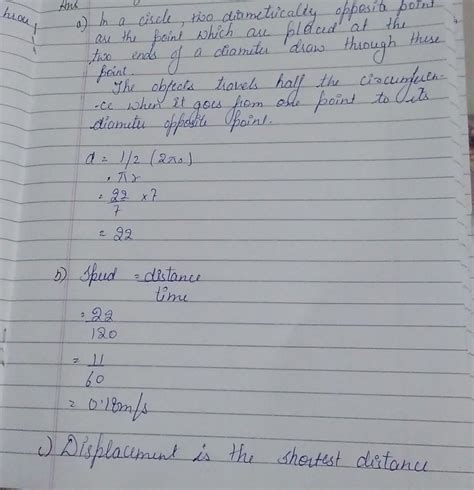 Ans
a) In a circle, two diametrically opposite point
are the point which are placed at the
two ends of a diameter draw through these
point.
The objects travels half the circumferen-
-ce when it goes from one point to its
diameter opposite point.
d = 1/2 (2πr)
= πr
= 22/7 × 7
= 22
b) Speed = distance/time
= 22/120
= 11/60
= 0.18m/s
c) Displacement is the shortest distance